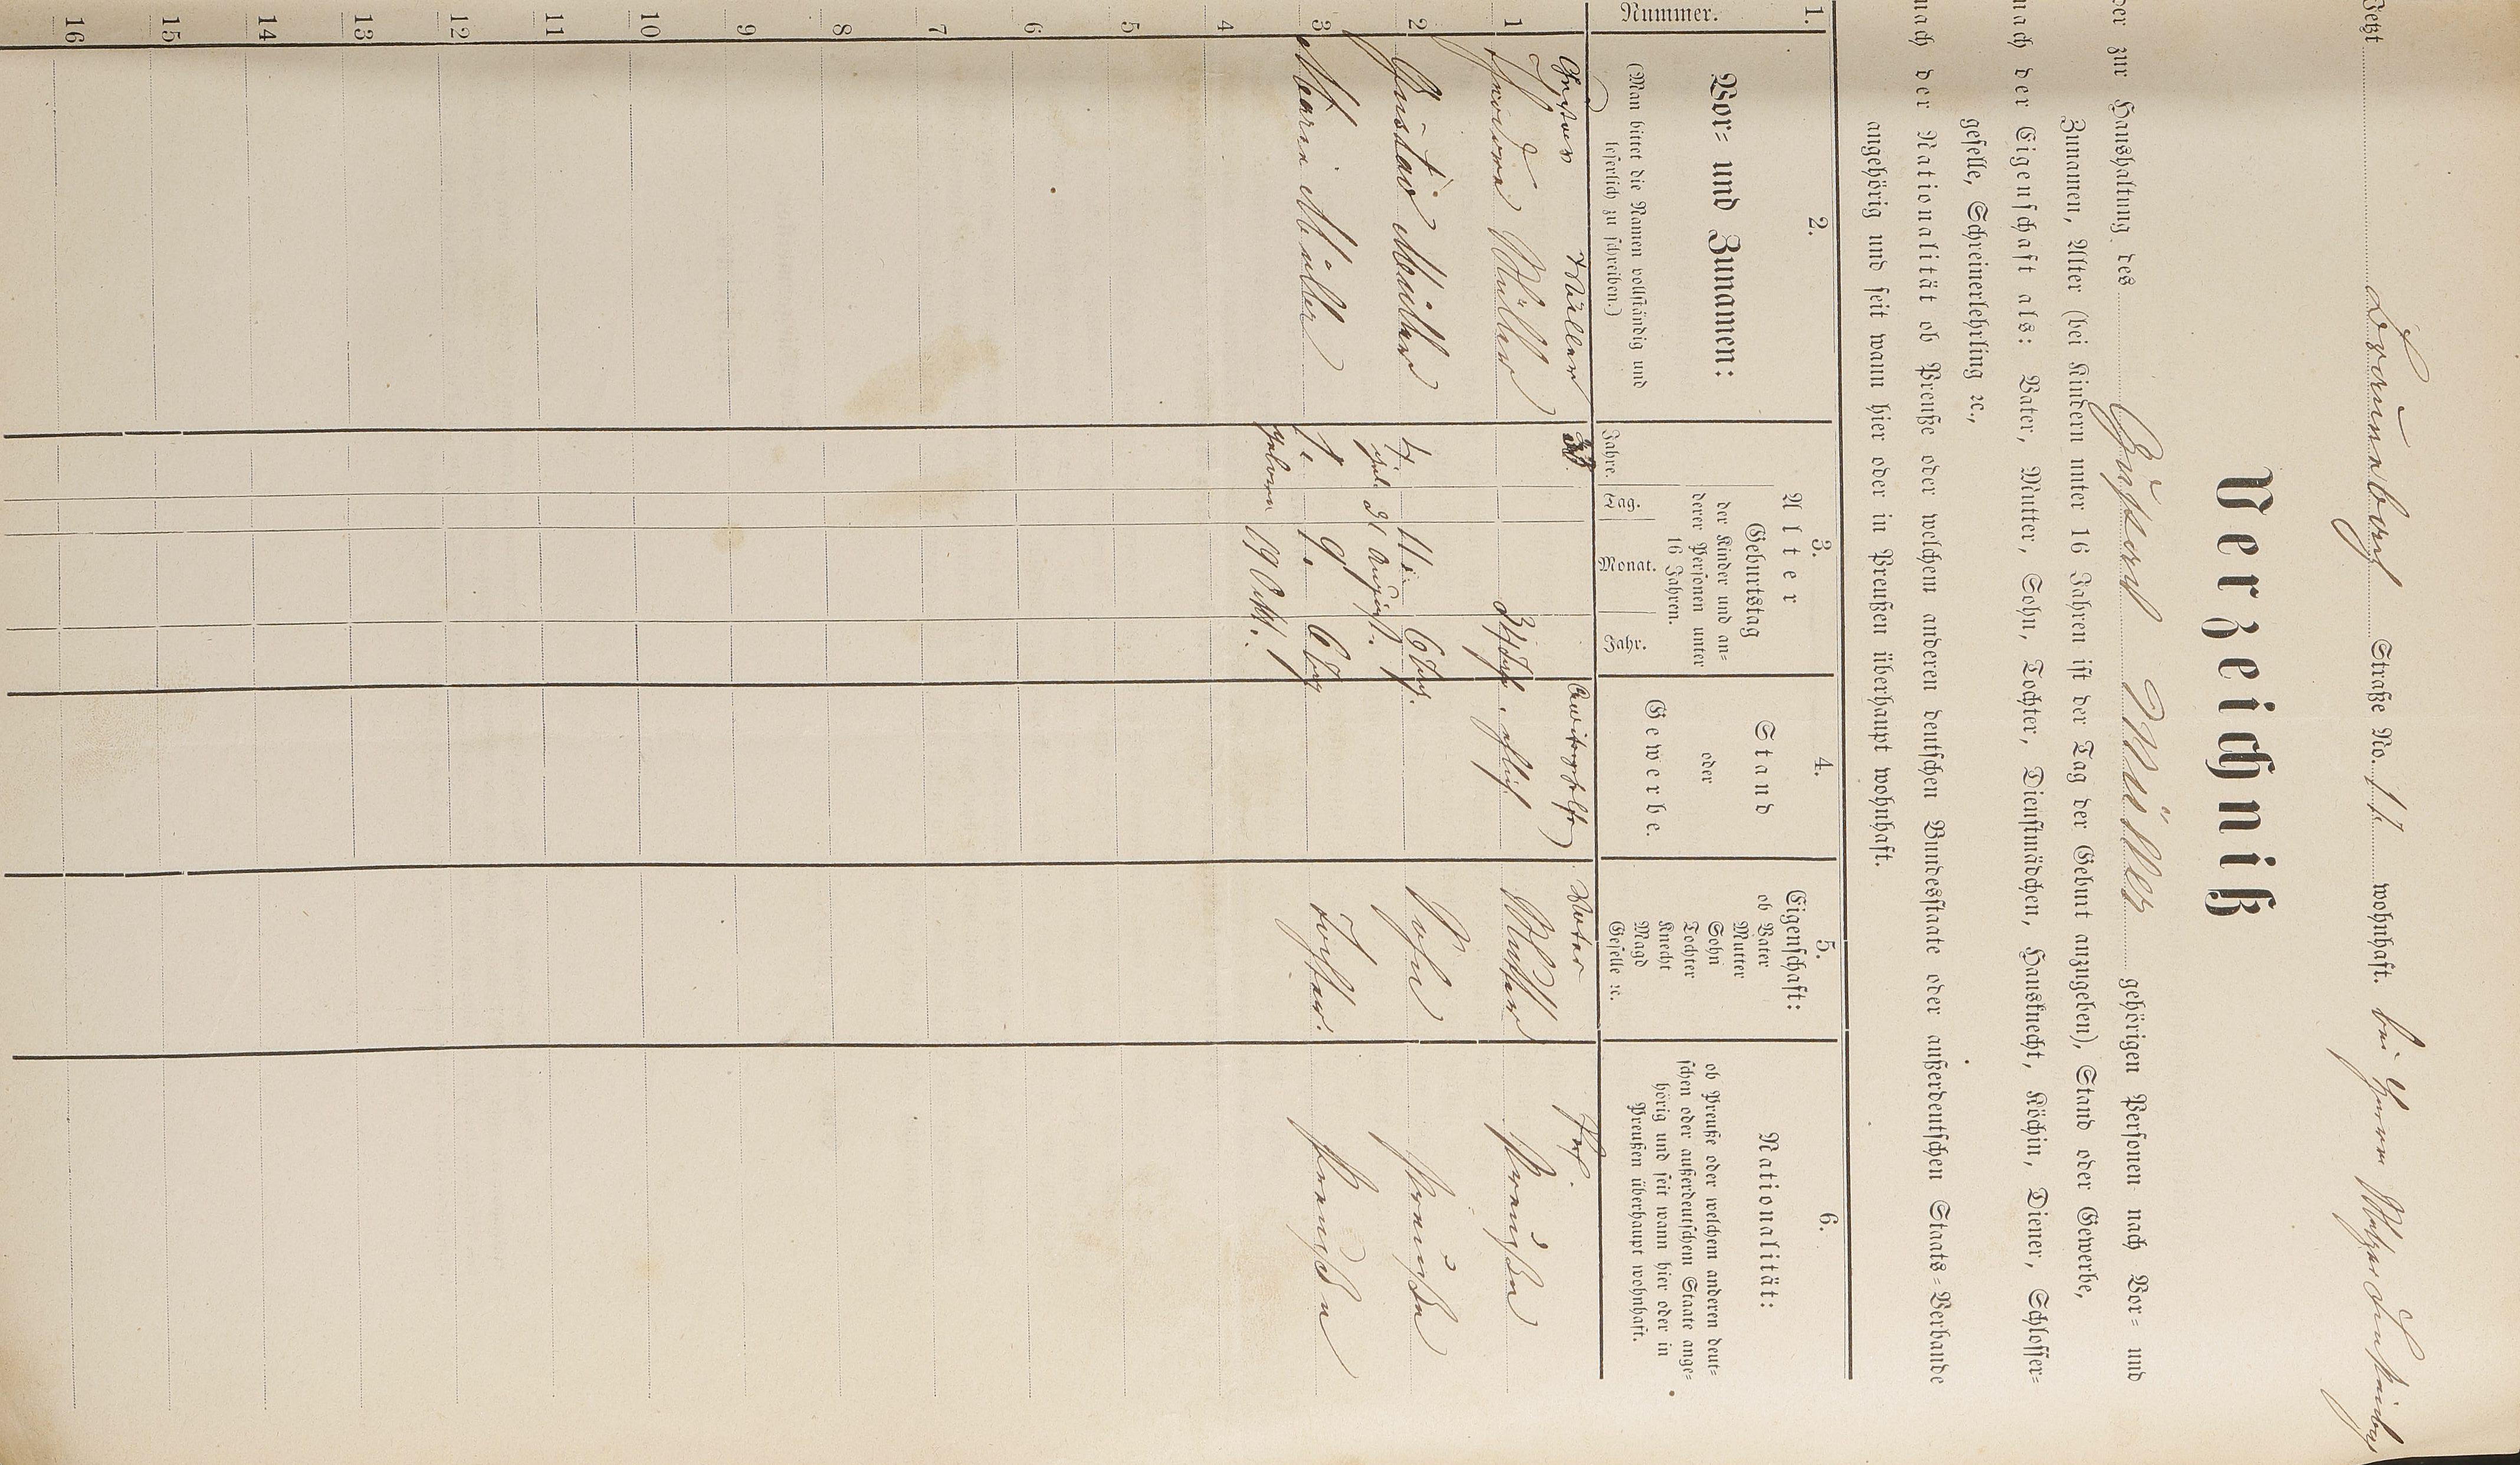 Jetzt Straße No. 11 wohnhaft. bei Herrn
Verzeichniß
der zur Haushaltung des Müller gehörigen Personen nach Vor- und
Zunamen, Alter (bei Kindern unter 16 Jahren ist der Tag der Geburt anzugeben), Stand oder Gewerbe,
nach der Eigenschaft als: Vater, Mutter, Sohn, Tochter, Dienstmädchen, Hausknecht, Köchin, Diener, Schlosser-
geselle, Schreinerlehrling ꝛc.,
nach der Nationalität ob Preuße oder welchem anderen deutschen Bundesstaate oder außerdeutschen Staats-Verbande
angehörig und seit wann hier oder in Preußen überhaupt wohnhaft.
1. 2. 3. 4. 5. 6.
Nummer.
Vor- und Zunamen:
(Man bittet die Namen vollständig und
leserlich zu schreiben.)
Alter
Jahre.
Geburtstag
der Kinder und an-
derer Personen unter
16 Jahren.
Tag. Monat. Jahr.
Stand
oder
Gewerbe.
Eigenschaft:
ob Vater
Mutter
Sohn
Tochter
Knecht
Magd
Geselle ꝛc.
Nationalität:
ob Preuße oder welchem anderen deut-
schen oder außerdeutschem Staate ange-
hörig und seit wann hier oder in
Preußen überhaupt wohnhaft.
Müller Vater
1 Müller 34 Mutter Preußen
2 Gustav Müller 4. 11. Sohn Preußen
geb. 21 August.
3 Marie Müller 1. 9. Tochter. Preußen
geboren 19
4
5
6
7
8
9
10
11
12
13
14
15
16